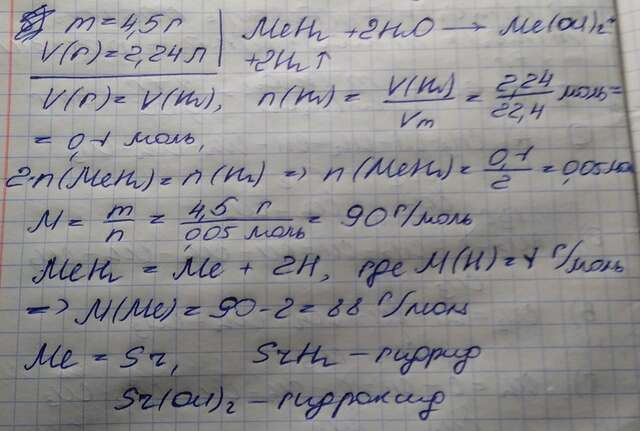 m = 4,5 г
V(г) = 2,24 л
MeH₂ + 2H₂O → Me(OH)₂ +
+2H₂↑
V(г) = V(H₂), n(H₂) = V(H₂)/Vm = 2,24/22,4 моль =
= 0,1 моль,
2·n(MeH₂) = n(H₂) => n(MeH₂) = 0,1/2 = 0,05 моль
M = m/n = 4,5 г/0,05 моль = 90 г/моль
MeH₂ = Me + 2H, где M(H) = 1 г/моль
=> M(Me) = 90 - 2 = 88 г/моль
Me = Sr, SrH₂ – гидрид
Sr(OH)₂ – гидроксид